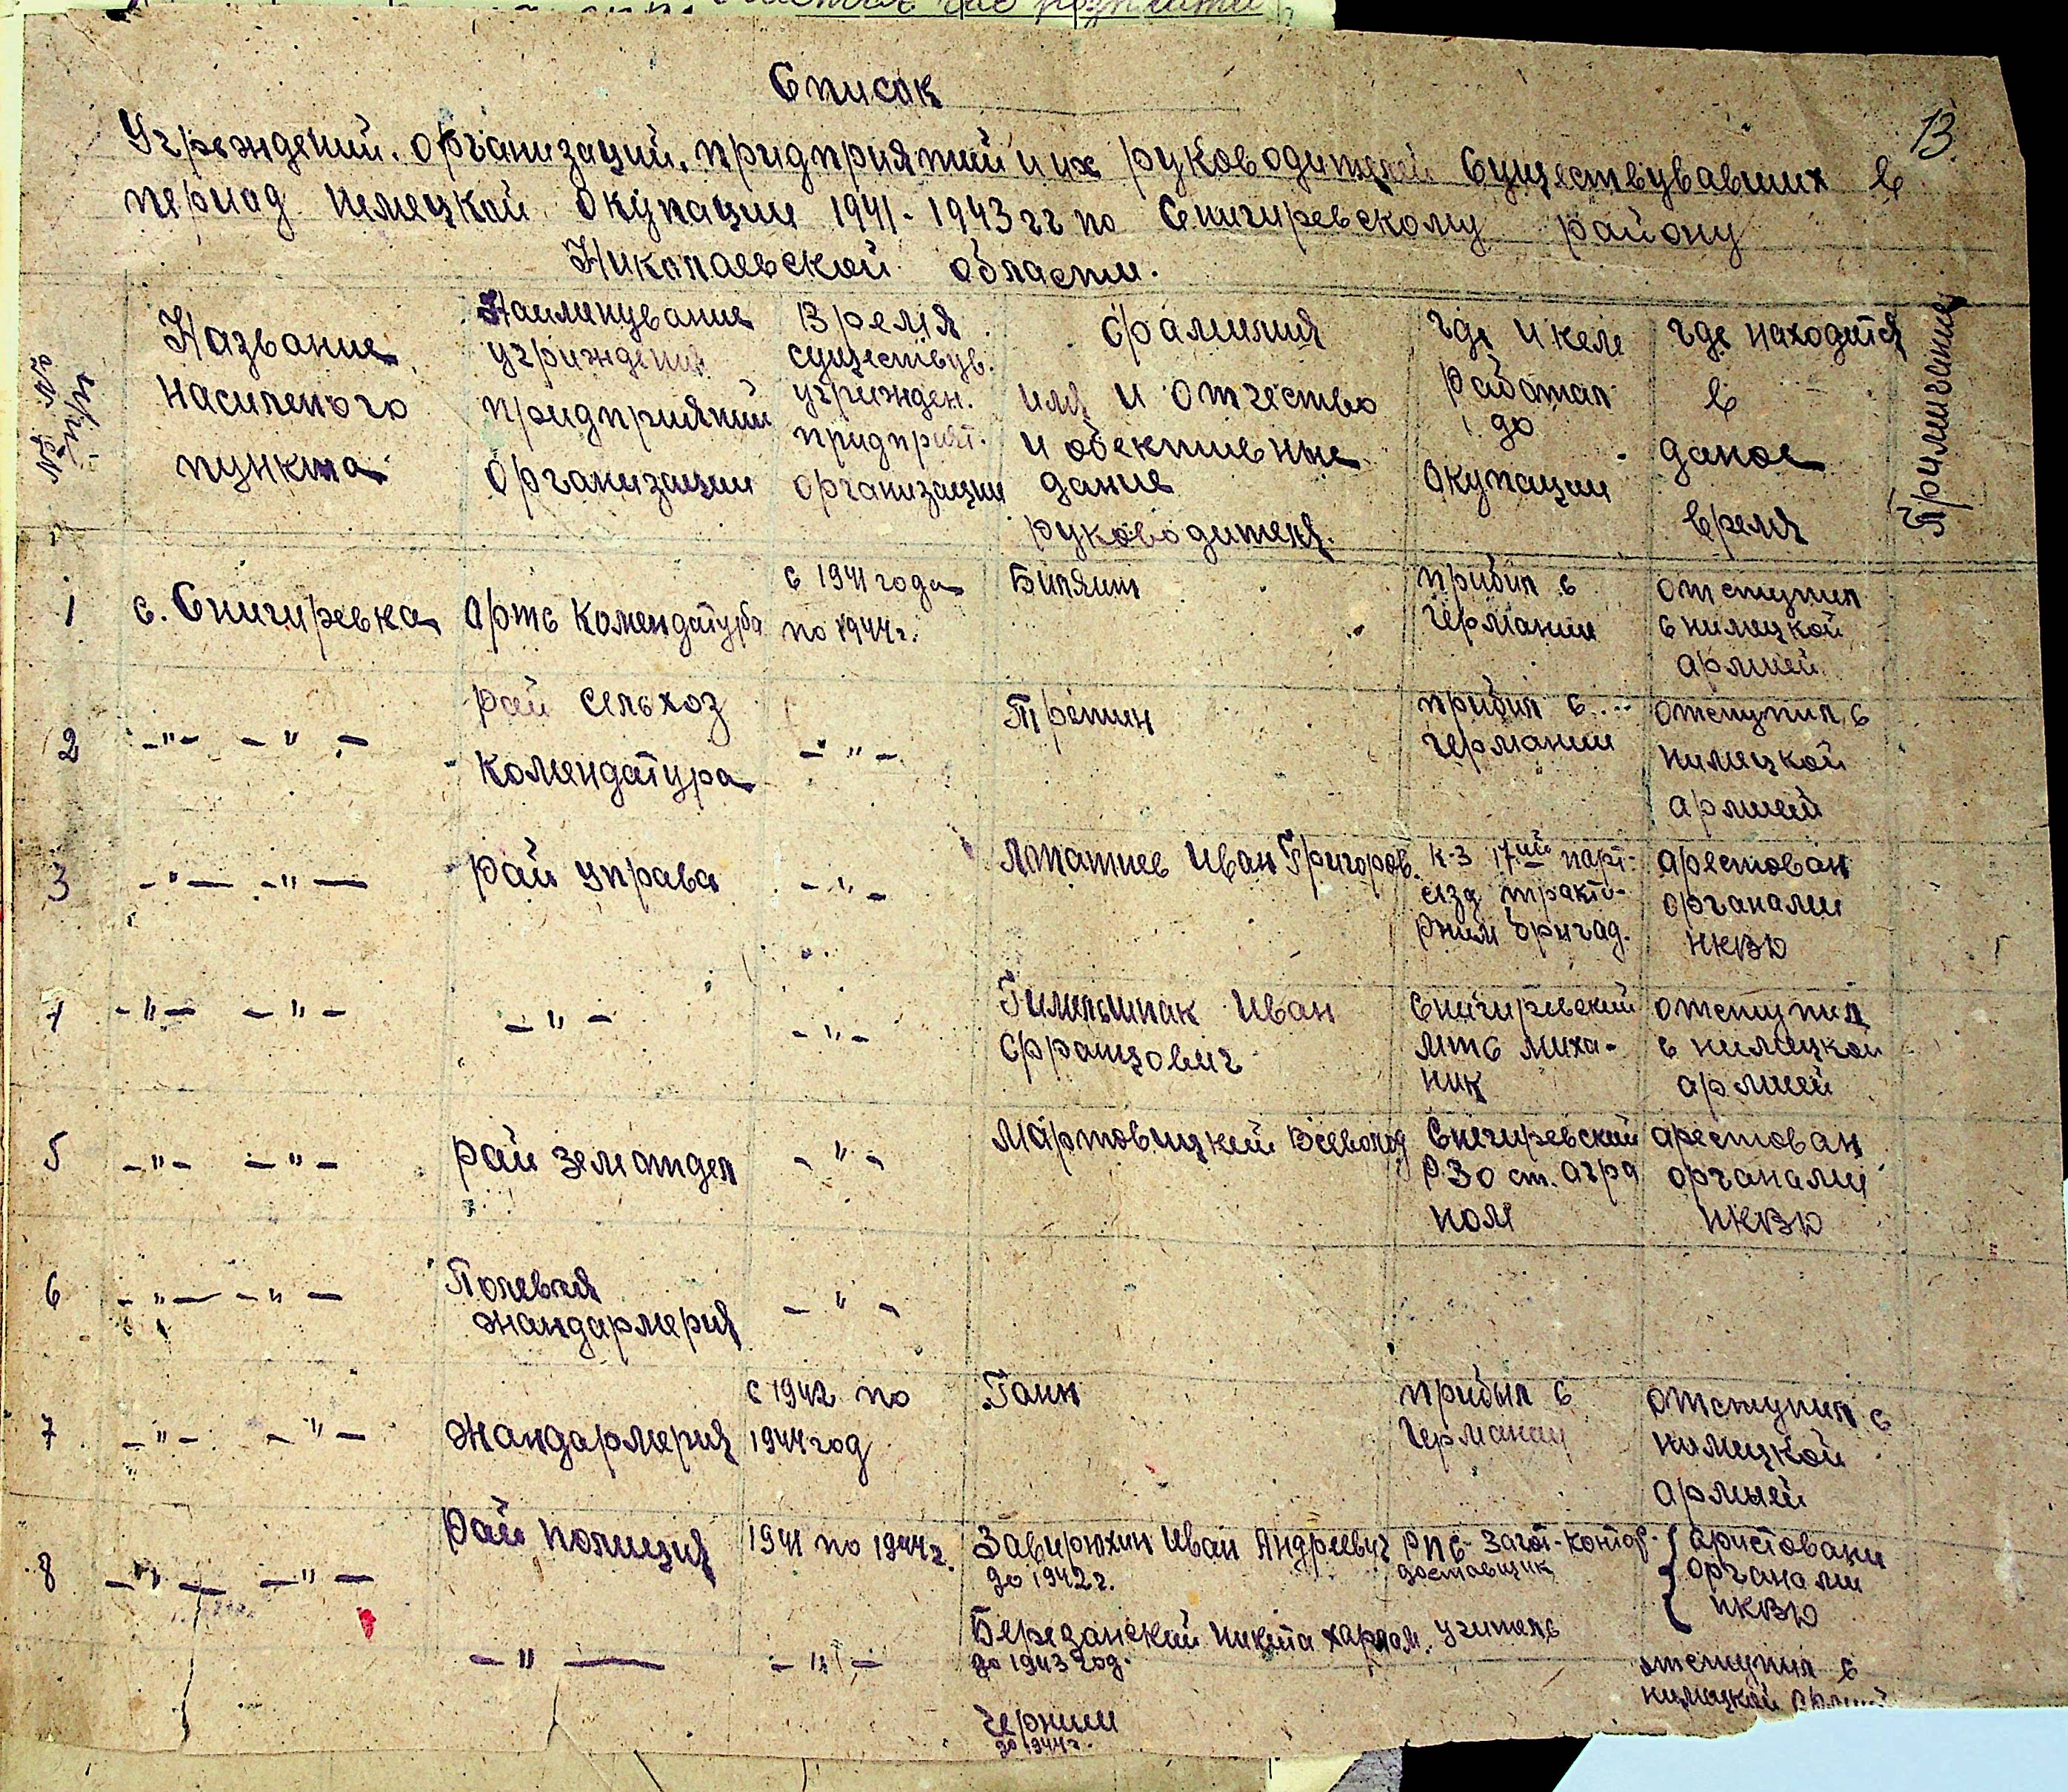 Список
13.
Учреждений, организаций, придприятий и их руководителей существувавших в
период немецкой окупации 1941-1943 гг по Снигиревскому району
Николаевской области.
№№ п/п
Название насиленого пункта
Наименувание учриждений придприятий организации
Время существув. учрижден. придприят. организации
фамилия имя и отчество и обективные дание руководителя.
где и кем работал до окупации
где находится в даное время
Примечание
1 с. Снигиревка Орте комендатура с 1941 года по 1944 г. прибил с Германии отступил с нимецкой армией
2 -"- -"- Рай сельхоз комендатура -"- прибил с Германии отступил с нимецкой армией
3 -"- -"- Рай управа -"- Иван Григоров. к-з 17ий парт- сезд тракто- рним бригад. арестован органами НКВД
4 -"- -"- -"- -"- Гимельшпак Иван Францович Снигиревский МТС миха- ник отступил с нимецкой армией
5 -"- -"- Рай земотдел -"- Мартовицкий Всеволод Снигиревский РЗО ст. агро ном арестован органами НКВД
6 -"- -"- Полевая жандармерия -"-
7 -"- -"- Жандармерия с 1942 по 1944 год Ганн прибыл с Германии отступил с нимецкой армией
8 -"- -"- Рай полиция 1941 по 1944 г. Завирюхин Иван Андреевич до 1942 г. РПС-загот-контор- доставщик аристовани органами НКВД
-"- -"- Березанский Никита Харлам. до 1943 год. учитель
отступил с нимецкой армией
до 1944 г.